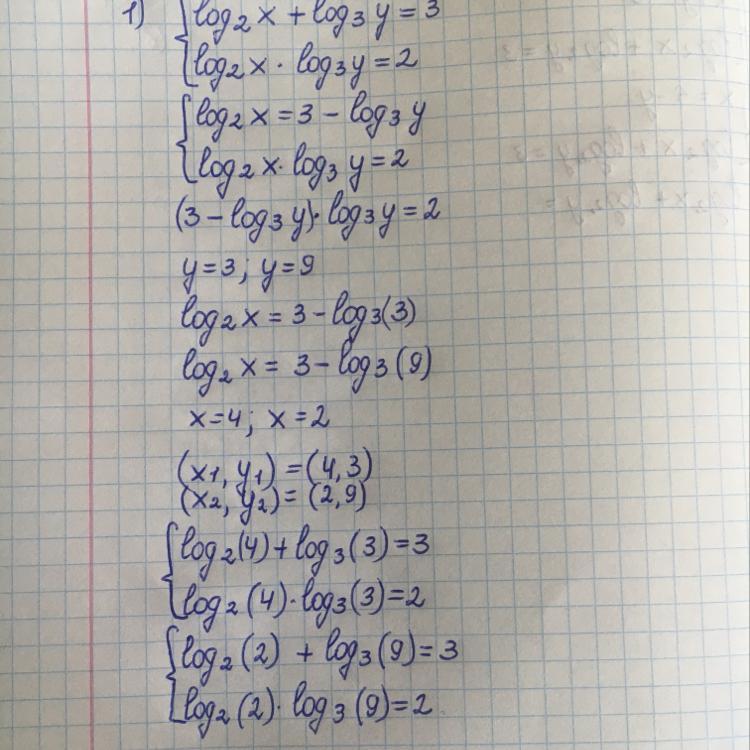 1) log₂ x + log₃ y = 3
log₂ x · log₃ y = 2
log₂ x = 3 - log₃ y
log₂ x · log₃ y = 2
(3 - log₃ y) · log₃ y = 2
y = 3; y = 9
log₂ x = 3 - log₃(3)
log₂ x = 3 - log₃(9)
x = 4; x = 2
(x₁, y₁) = (4, 3)
(x₂, y₂) = (2, 9)
log₂(4) + log₃(3) = 3
log₂(4) · log₃(3) = 2
log₂(2) + log₃(9) = 3
log₂(2) · log₃(9) = 2